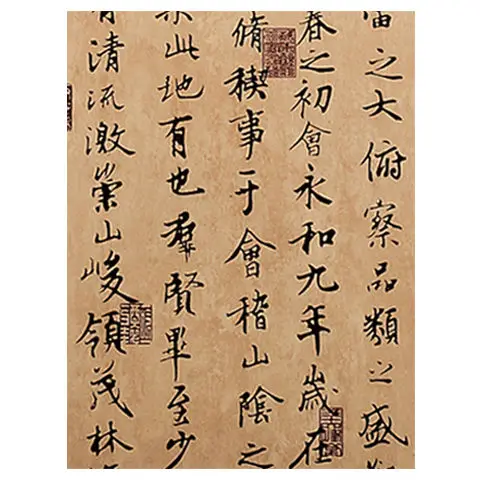 宙之大俯察品類之盛
春之初會永和九年歲在
脩稧事于會稽山陰之
此地有也羣賢畢至少
清流激崇山峻領茂林